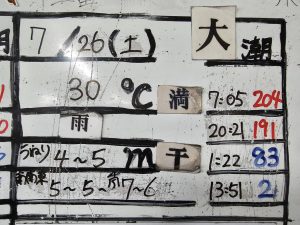 7/26(土) 大潮
30℃ 満 7:05 204
雨 20:21 191
うねり 4〜5m 干 1:22 83
5〜5〜 7〜6 13:51 2